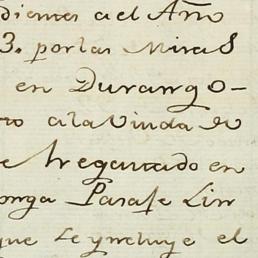 dientes del Año
3. por las Minas
en Durango-
ro a la Viuda de
e Arrendado en
onga Parase Lin
que se yncluye el